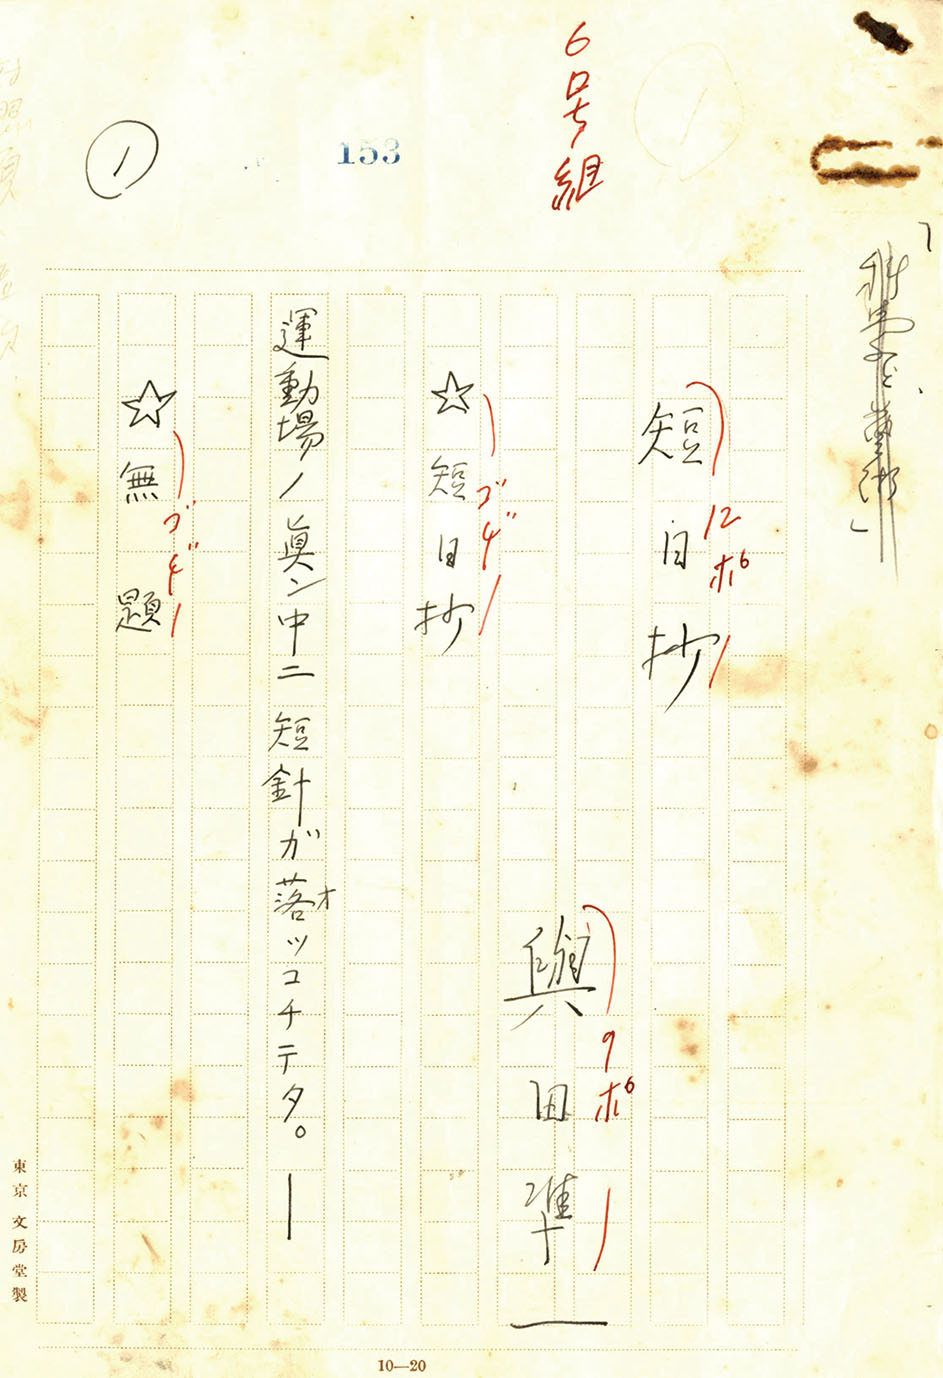 6号組
153
1
短日抄
12ポ
與田準一
9ポ
☆短日抄
ゴヂ
運動場ノ眞ン中ニ短針ガ落オッコチテタ。―
☆無題
ゴヂ
東京 文房堂製
10—20